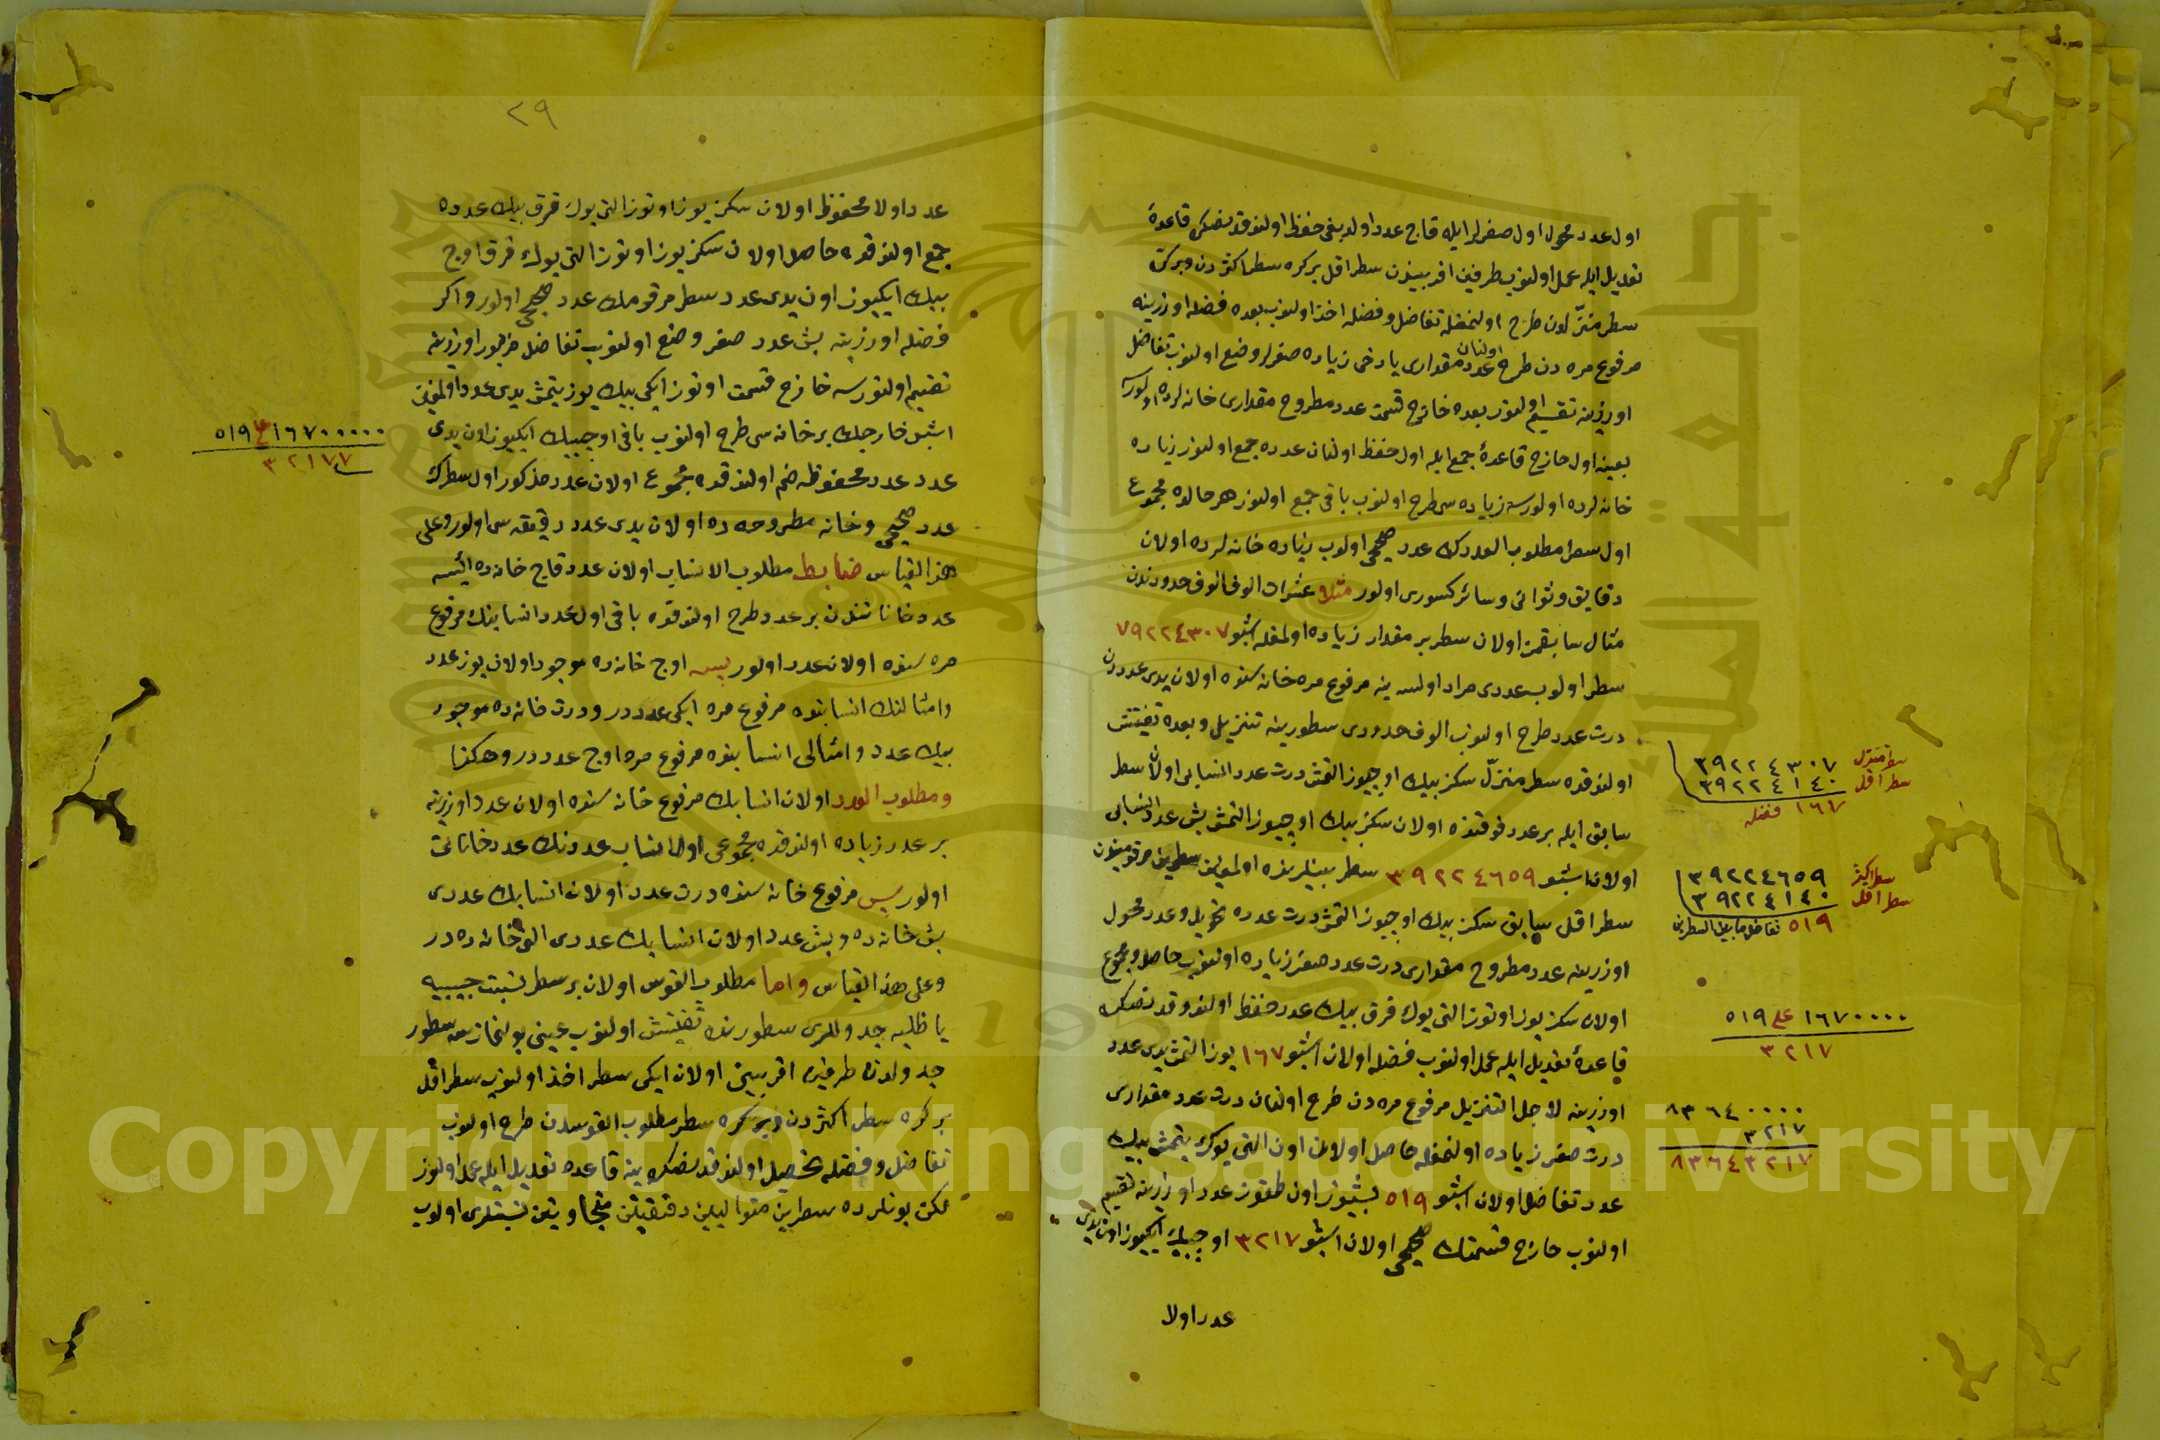 اول عدد محول اول صفرلر ايله قاچ عدد اولديغى حفظ اولندقدنصكره قاعدهٔ
تعديل ايله عمل اولنوب طرفين اقربيندن سطر اقل بر كره سطر اكثردن وبر كره
سطر منزّلدن طرح اولنمغله تفاضل و فضله اخذ اولنوب بعده فضله اوزرينه
مرفوع مره دن طرح اولنان عدد مقدارى ياخود دخى زياده صفرلر وضع اولنوب تفاضل
اوزرينه تقسيم اولنور بعده خارج قسمت عدد مطروح مقدارى خانه لرده اولورسه
بعينه اول خارج قاعدهٔ جمع ايله اول حفظ اولنان عدده جمع اولنور زياده
خانه لرده اولورسه زياده سى طرح اولنوب باقى جمع اولنور هر حالده مجموع
اول سطر مطلوب العددك عدد صحيحى اولوب زياده خانه لرده اولان
دقايق وثوانى وسائر كسورى اولور مثلا عشرات الوف الوف حدودندن
مثال سابقمز اولان سطر بر مقدار زياده اولمغله اشبو ٧٩٢٢٤٣٠٧
سطر اولوب عددى مراد اولسه ينه مرفوع مره خانه سنده اولان يدى عددندن
درت عدد طرح اولنوب الوف حدودى سطورينه تنزيل وبعده تفتيش
اولندقده سطر منزّل سكز بيك اوچيوز التمش درت عدد انسابى اولان سطر
سابق ايله بر عدد فوقنده اولان سكز بيك اوچيوز التمش بش عدد انسابى
اولان اشبو ٣٩٢٢٤٦٥٩ سطر بينلرينده اولمغين سطرين مرقوميندن
سطر اقل سابق سكز بيك اوچيوز التمش درت عدده تحويل وعدد محول
اوزرينه عدد مطروح مقدارى درت عدد صفر زياده اولنوب حاصل ومجموع
اولان سكز يوز اوتوز التى يوك قرق بيك عدد حفظ اولندقدنصكره
قاعدهٔ تعديل ايله عمل اولنوب فضله اولان اشبو ١٦٧ يوز التمش يدى عدد
اوزرينه لاجل التنزيل مرفوع مره دن طرح اولنان درت عدد مقدارى
درت صفر زياده اولنمغله حاصل اولان اون التى يوك يتمش بيك
عدد تفاضل اولان اشبو ٥١٩ بشيوز اون طقوز عدد اوزرينه تقسيم
اولنوب خارج قسمتك صحيحى اولان اشبو ٣٢١٧ اوچبيك ايكيوز اون يدى
عدد اولا
سطر منزل ٣٩٢٢٤٣٠٧
سطر اقل ٣٩٢٢٤١٤٠
١٦٧ فضله
سطر اكثر ٣٩٢٢٤٦٥٩
سطر اقل ٣٩٢٢٤١٤٠
٥١٩ تفاضل ما بين السطرين
١٦٧٠٠٠٠ على ٥١٩
٣٢١٧
٨٣٦٤٠٠٠٠
٣٢١٧
٨٣٦٤٣٢١٧
٢٩
عدد اولا محفوظ اولان سكز يوز اوتوز التى يوك قرق بيك عدده
جمع اولندقده حاصل اولان سكز يوز اوتوز التى يوك قرق اوچ
بيك ايكيوز اون يدى عدد سطر مرقومك عدد صحيحى اولور واكر
فضله اوزرينه بش عدد صفر وضع اولنوب تفاضل مزبور اوزرينه
تقسيم اولنورسه خارج قسمت اوتوز ايكى بيك يوز يتمش يدى عدد اولمغين
اشبو خارجك بر خانه سى طرح اولنوب باقى اوچبيك ايكيوز اون يدى
عدد عدد محفوظه ضم اولندقده مجموع اولان عدد مذكور اول سطرك
عدد صحيحى وخانه مطروحه ده اولان يدى عدد دقيقه سى اولور وعلى
هذا القياس ضابط مطلوب الانساب اولان عدد قاچ خانه ده ايسه
عدد خاناتندن بر عدد طرح اولندقده باقى اول عدد انسابنك مرفوع
مره سنده اولان عدد اولور پس اوچ خانه ده موجود اولان يوز عدد
وامثالنك انسابنده مرفوع مره ايكى عدددر ودرت خانه ده موجود
بيك عدد وامثالى انسابنده مرفوع مره اوچ عدددر وهكذا
ومطلوب العدد اولان انسابك مرفوع خانه سنده اولان عدد اوزرينه
بر عدد زياده اولندقده مجموعى اول انساب عددنك عدد خاناتى
اولور پس مرفوع خانه سنده درت عدد اولان انسابك عددى
بش خانه ده وبش عدد اولان انسابك عددى التى خانه ده در
وعلى هذا القياس واما مطلوب القوس اولان بر سطر نسبت جيبيه
يا ظليه جدوللرى سطورنده تفتيش اولنوب عينى بولنمازسه سطور
جدولدن طرفين اقربينى اولان ايكى سطر اخذ اولنوب سطر اقل
بر كره سطر اكثردن وبر كره سطر مطلوب القوسدن طرح اولنوب
تفاضل وفضله تحصيل اولندقدنصكره ينه قاعده تعديل ايله عمل اولنور
لكن بونلرده سطرين متواليين دقيقتين متجاورتين نسبتلرى اولوب
١٦٧٠٠٠٠٠ على ٥١٩
٣٢١٧٧
Copyright © King Saud University
جامعة الملك سعود
1957